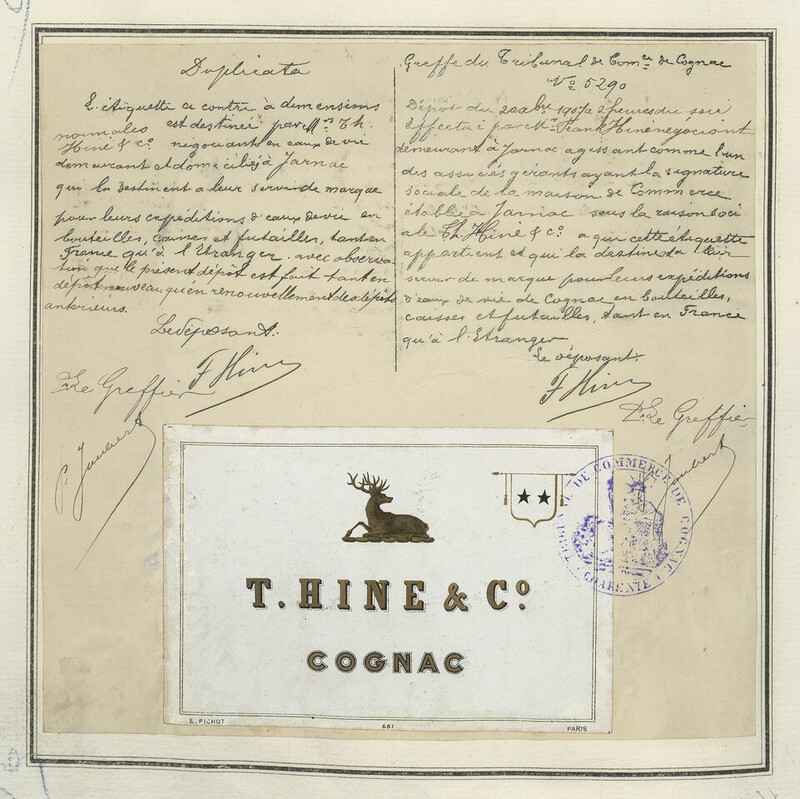 Duplicata
L'étiquette ci contre à dimensions
normales est destinée par Mrs Th.
Hine & Co. négociants en eaux de vie
demeurant et domiciliés à Jarnac
qui la destinent a leur servir de marque
pour leurs expéditions d'eaux de vie en
bouteilles, caisses et futailles, tant en
France qu'à l'Etranger. avec observa
tion que le présent dépôt est fait tant en
dépôt nouveau qu'en renouvellement des dépôts
antérieurs.
Le déposant.
F Hine
P. Le Greffier
P. Joubert
Greffe du Tribunal de Comce de Cognac
No 5290
Dépôt du 20 Xbre 1907 à 2 heures du soir
Effectué par Mr. Frank Hine négociant
demeurant à Jarnac agissant comme l'un
des associés gérants ayant la signature
sociale de la maison de Commerce
établie à Jarnac sous la raison soci
ale Th. Hine & Co. a qui cette étiquette
appartient et qui la destine à leur
servir de marque pour leurs expéditions
d'eaux de vie de Cognac en bouteilles,
caisses et futailles, tant en France
qu'à l'Etranger
Le déposant.
F Hine
P. Le Greffier
Joubert
TRIBUNAL DE COMMERCE DE COGNAC
CHARENTE
T. HINE & Co.
COGNAC
E. PICHOT
587
PARIS